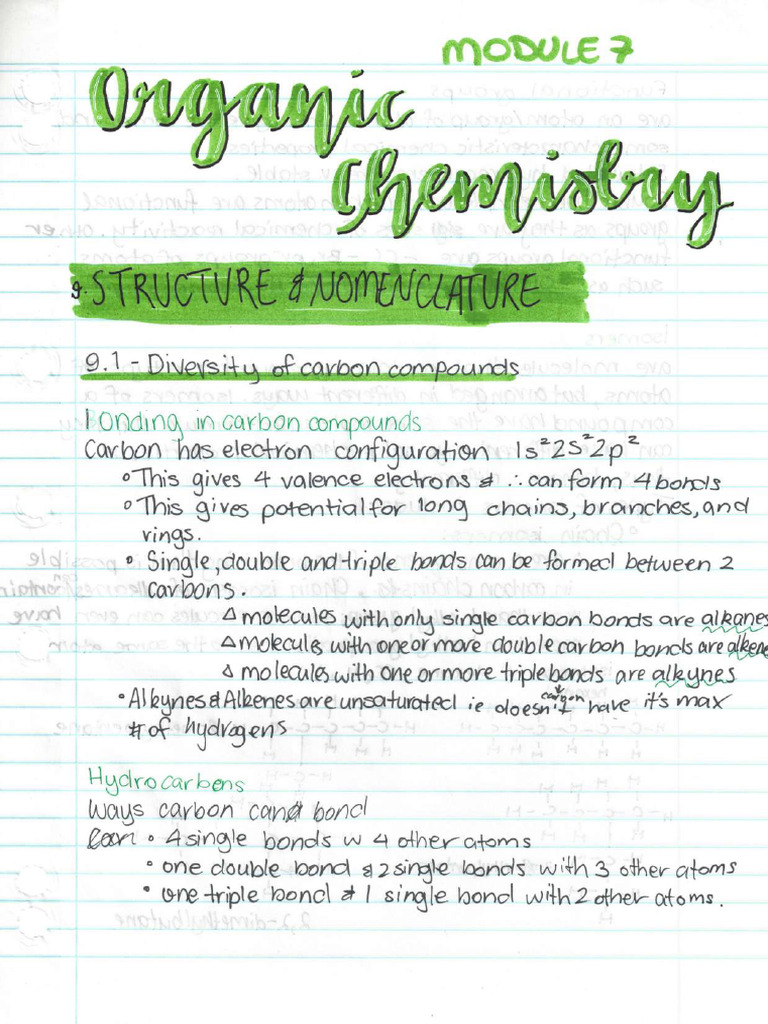 MODULE 7
Organic
Chemistry
9. STRUCTURE & NOMENCLATURE
9.1 - Diversity of carbon compounds
Bonding in carbon compounds
Carbon has electron configuration 1s²2s²2p²
° This gives 4 valence electrons & ∴ can form 4 bonds
° This gives potential for long chains, branches, and
rings.
° Single, double and triple bonds can be formed between 2
carbons.
△ molecules with only single carbon bonds are alkanes
△ molecules with one or more double carbon bonds are alkene
△ molecules with one or more triple bonds are alkynes
° Alkynes & Alkenes are unsaturated ie carbon doesn't have it's max
# of hydrogens
Hydrocarbons
Ways carbon can bond
• 4 single bonds w 4 other atoms
• one double bond & 2 single bonds with 3 other atoms
• one triple bond & 1 single bond with 2 other atoms.